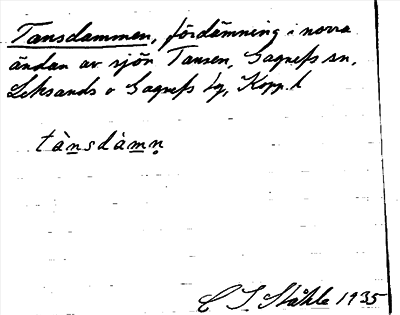 Tansdammen, fördämning i norra
ändan av sjön Tansen, Gagnefs sn,
Leksands o Gagnefs tg, Kopp. l
tànsdàmn
C I Ståhle 1935